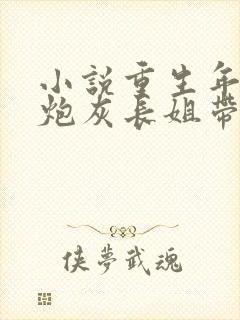 小說重生年
炮灰長姐帶
俠夢武魂